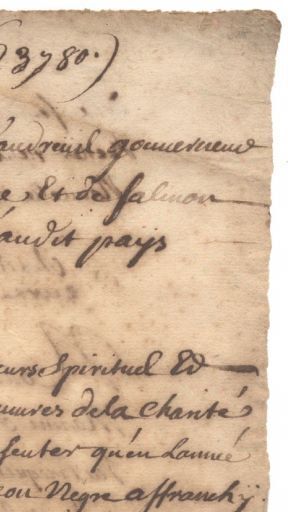 3780.)
audreuil gouverneur
e Et de Salmon
audit pays
eurs Spirituel Et
euures de la Charité
senter qu'en Lanné
eon Négre affranchÿ